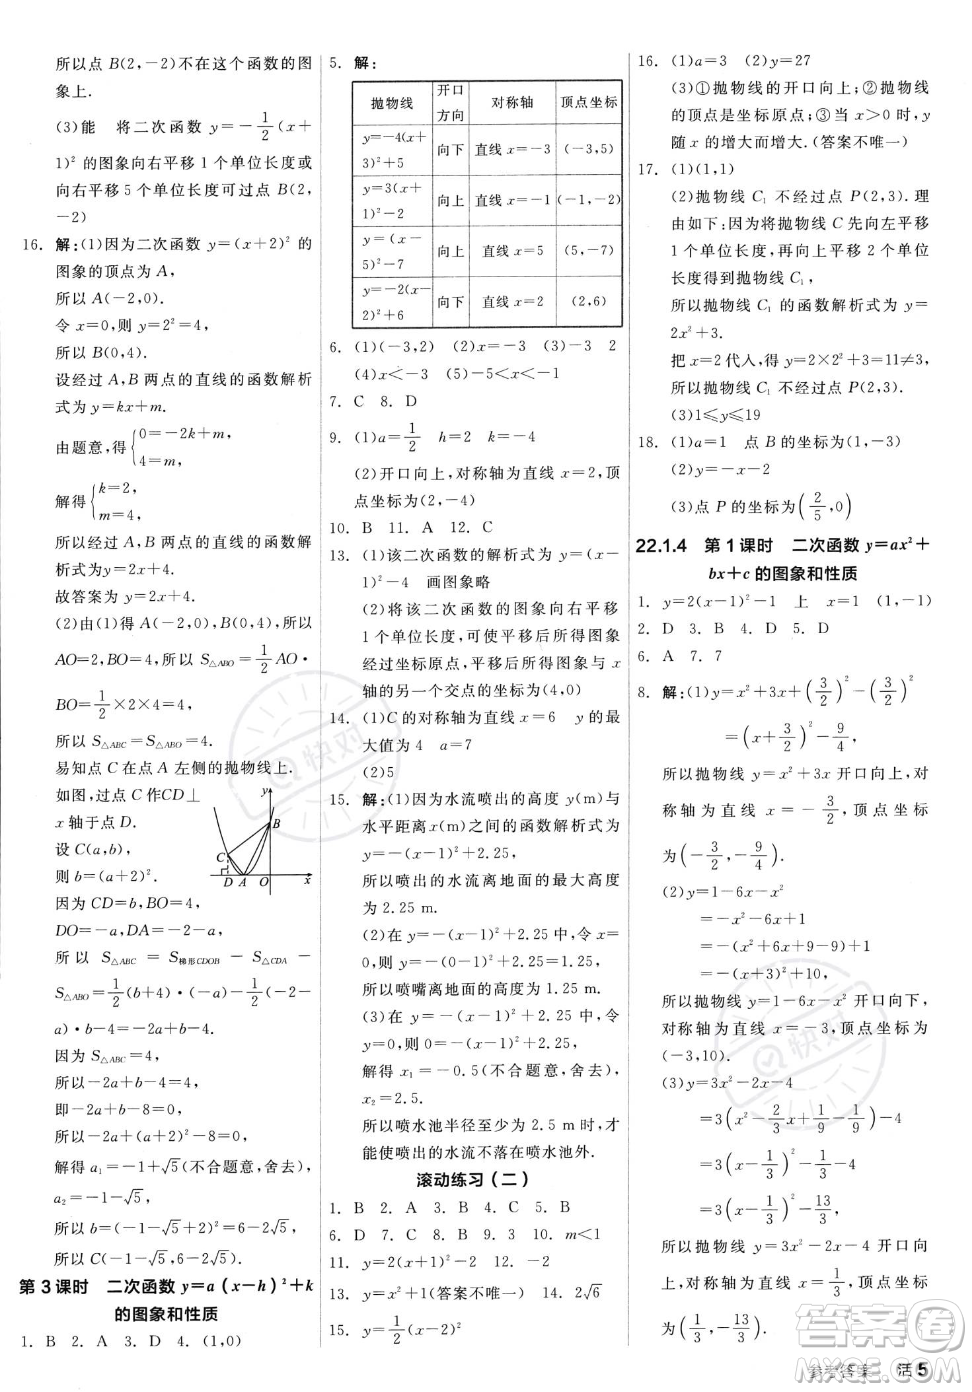 所以点 B(2,-2)不在这个函数的图
象上.
(3)能 将二次函数 y=-1/2(x+
1)² 的图象向右平移 1 个单位长度或
向右平移 5 个单位长度可过点 B(2,
-2)
16. 解:(1)因为二次函数 y=(x+2)² 的
图象的顶点为 A,
所以 A(-2,0).
令 x=0,则 y=2²=4,
所以 B(0,4).
设经过 A,B 两点的直线的函数解析
式为 y=kx+m.
由题意,得{0=-2k+m,
4=m.
解得{k=2,
m=4,
所以经过 A,B 两点的直线的函数解
析式为 y=2x+4.
故答案为 y=2x+4.
(2)由(1)得 A(-2,0),B(0,4),所以
AO=2,BO=4,所以 S△ABO=1/2AO·
BO=1/2×2×4=4,
所以 S△ABC=S△ABO=4.
易知点 C 在点 A 左侧的抛物线上.
如图,过点 C 作CD⊥
x 轴于点 D.
设 C(a,b),
则 b=(a+2)².
因为 CD=b,BO=4,
DO=-a,DA=-2-a,
所以 S△ABC = S梯形CDOB - S△CDA -
S△ABO=1/2(b+4)·(-a)-1/2(-2-
a)·b-4=-2a+b-4.
因为 S△ABC=4,
所以-2a+b-4=4,
即-2a+b=8,
所以-2a+(a+2)²=8,
解得 a₁=-1+√5(不合题意,舍去),
a₂=-1-√5,
所以 b=(-1-√5+2)²=6-2√5,
所以 C(-1-√5,6-2√5).
第 3 课时 二次函数 y=a(x-h)²+k
的图象和性质
1. B 2. A 3. D 4. (1,0)
y
B
C
D A O x
5. 解:
抛物线 开口方向 对称轴 顶点坐标
y=-4(x+3)²+5 向下 直线 x=-3 (-3,5)
y=3(x+1)²-2 向上 直线 x=-1 (-1,-2)
y=(x-5)²-7 向上 直线 x=5 (5,-7)
y=-2(x-2)²+6 向下 直线 x=2 (2,6)
6. (1)(-3,2) (2)x=-3 (3)-3 2
(4)x<-3 (5)-5<x<-3
7. C 8. D
9. (1)a=1/2 h=2 k=-4
(2)开口向上,对称轴为直线 x=2,顶
点坐标为(2,-4)
10. B 11. A 12. C
13. (1)该二次函数的解析式为 y=(x-
1)²-4 画图象略
(2)将该二次函数的图象向右平移
1 个单位长度,可使平移后所得图象
经过坐标原点,平移后所得图象与 x
轴的另一个交点的坐标为(4,0)
14. (1)C 的对称轴为直线 x=6 y 的最
大值为 4 a=7
(2)5
15. 解:(1)因为水流喷出的高度 y(m)与
水平距离x(m)之间的函数解析式为
y=-(x-1)²+2.25,
所以喷出的水流离地面的最大高度
为 2.25 m.
(2)在 y=-(x-1)²+2.25 中,令
x=0,得 y=-(0-1)²+2.25=1.25.
所以喷嘴离地面的高度为 1.25 m.
(3)在 y=-(x-1)²+2.25 中,令
y=0,则 0=-(x-1)²+2.25,
解得 x₁=-0.5(不合题意,舍去),
x₂=2.5.
所以喷水池半径至少为 2.5 m 时,才
能使喷出的水流不落在喷水池外.
滚动练习(二)
1. B 2. A 3. B 4. C 5. B
6. D 7. C 8. D 9. 3 10. m<1
11. y=x²+1(答案不唯一) 14. 2√6
15. y=1/2(x-2)²
16. (1)a=3 (2)y=27
(3)①抛物线的开口向上;②抛物线
的顶点是坐标原点;③当 x>0 时,y
随 x 的增大而增大.(答案不唯一)
17. (1)(1,1)
(2)抛物线 C₁ 不经过点 P(2,3). 理
由如下:因为抛物线 C 先向左平移
1 个单位长度,再向上平移 2 个单位
长度得到抛物线 C₁,
所以抛物线 C₁ 的函数解析式为 y=
2x²+3.
把 x=2 代入,得 y=2×2²+3=11≠3,
所以抛物线 C₁ 不经过点 P(2,3).
(3)1≤y≤19
18. (1)a=1 点 B 的坐标为(1,-3)
(2)y=-x-2
(3)点 P 的坐标为(2/5,0)
22.1.4 第 1 课时 二次函数 y=ax²+
bx+c 的图象和性质
1. y=2(x-1)²-1 上 x=1 (1,-1)
2. D 3. B 4. D 5. D
6. A 7. 7
8. 解:(1)y=x²+3x+(3/2)²-(3/2)²
=(x+3/2)²-9/4,
所以抛物线 y=x²+3x 开口向上,对
称轴为直线 x=-3/2,顶点坐标
为(-3/2,-9/4).
(2)y=1-6x-x²
=-x²-6x+1
=-(x²+6x+9-9)+1
=-(x+3)²+10,
所以抛物线 y=1-6x-x² 开口向下,
对称轴为直线 x=-3,顶点坐标为
(-3,10).
(3)y=3x²-2x-4
=3(x²-2/3x+1/9-1/9)-4
=3(x-1/3)²-1/3-4
=3(x-1/3)²-13/3,
所以抛物线 y=3x²-2x-4 开口向
上,对称轴为直线 x=1/3,顶点坐标
为(1/3,-13/3).
参考答案 活 5
快对
快对
答案圈